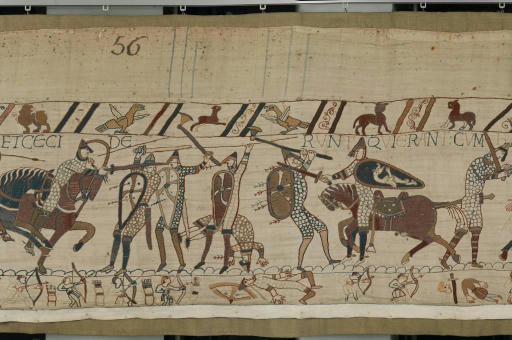 56
ET CECI DE RVNT QVI ERANT CVM